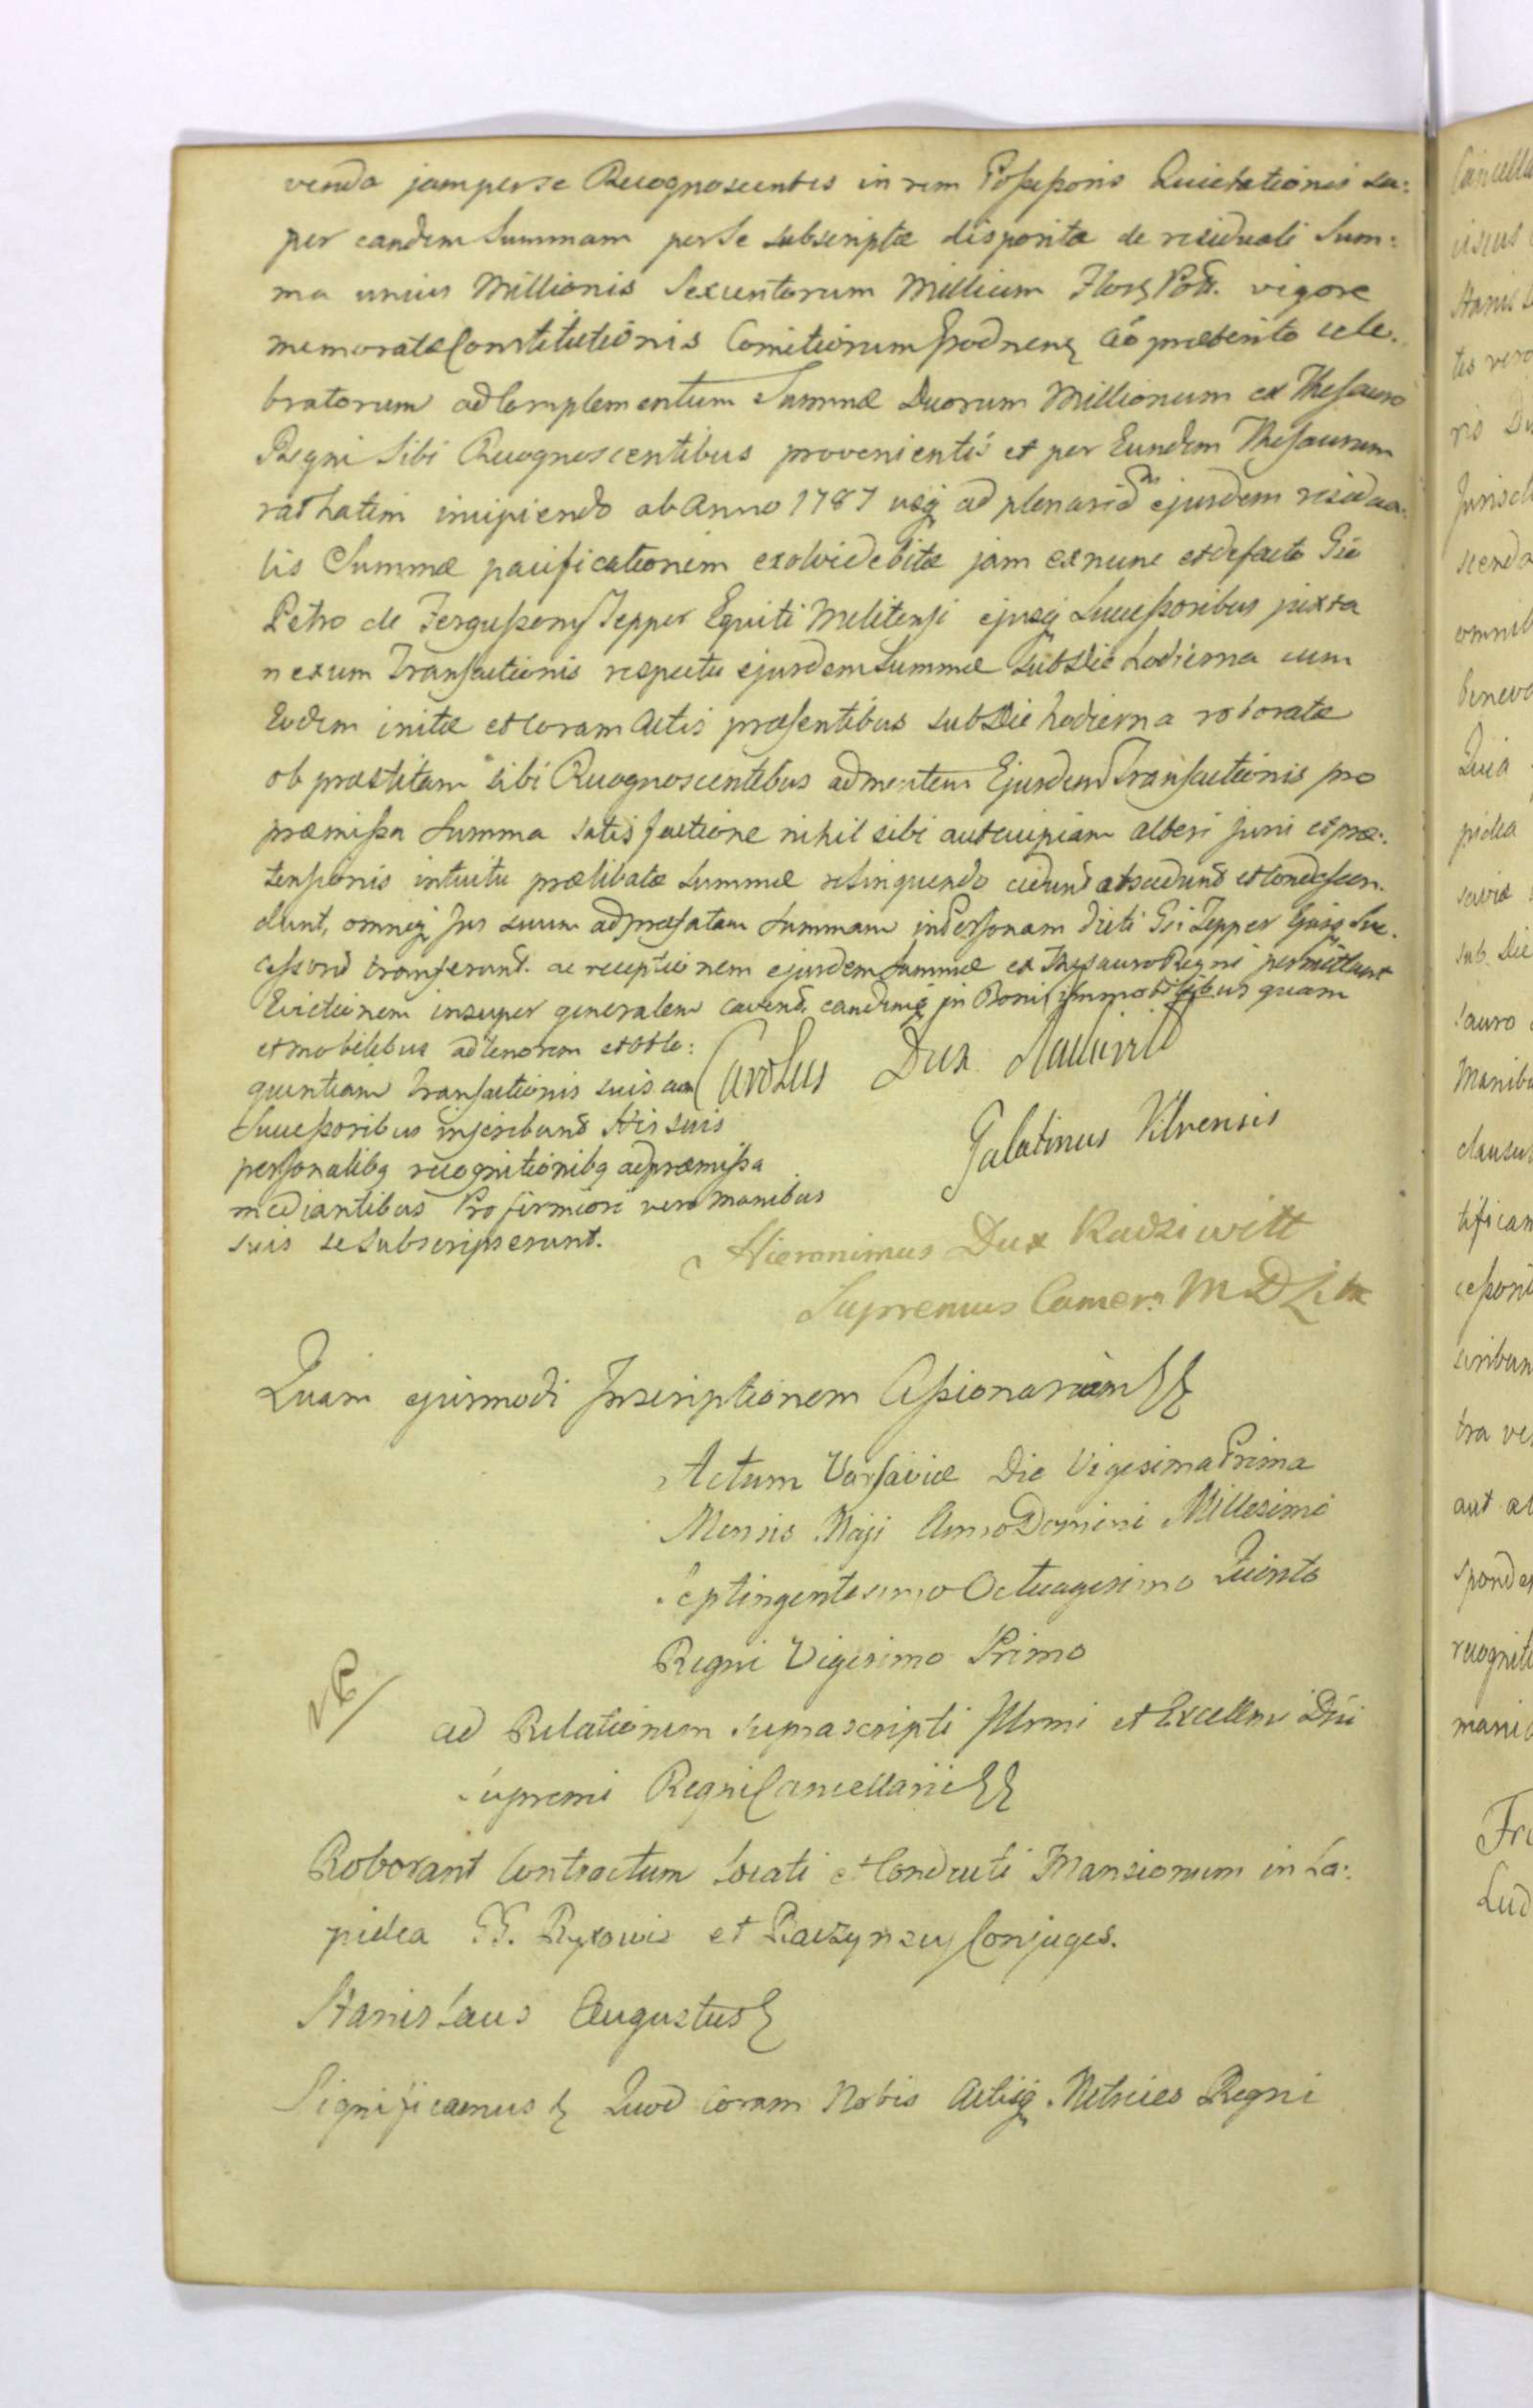 venda jam per se Recognoscentes in rem Possessoris Quietationis su:
per eandem Summam per Se subscriptæ disposita de residuali Sum:
ma unius Millionis Sexcentorum Millium Flor Poll. vigore
memoratæ Constitutionis Comitiorum Grodnens Aō præterito cele:
bratorum ad Complementum Summæ Duorum Millionum ex Thesauro
Regni Sibi Recognoscentibus provenientis et per Eundem Thesaurum
rathatim incipiendo ab Anno 1787 usq ad plenariam ejusdem residua:
lis Summæ pacificationem exolvi debitæ jam ex nunc et de facto Gso
Petro de Fergussony Tepper Equiti Melitensi ejusq Successoribus juxta
nexum Transactionis respectu ejusdem Summæ Sub Die hodierna cum
Eodem initæ et coram Actis præsentibus sub Die hodierna roboratæ
ob præstitam sibi Recognoscentibus ad mentem Ejusdem Transactionis pro
præmissa Summa satisfactione nihil sibi aut cuipiam alteri juris et præ:
tensionis intuitu prælibatæ Summæ relinquendo cedunt abscedunt et condescen:
dunt, omneq Jus suum ad præfatam Summam in Personam dicti Gsi Tepper Ejusq Suc:
cessorū transferunt. ac receptionem ejusdem Summæ ex Thesauro Regni permittunt
Evictionem insuper generalem cavend. eandemq in Bonis immobilibus quam
et mobilibus ad tenorem et otlo:
quentiam Transactionis suis cum
Successoribus inscribunt His suis
personalibq recognitionibq ad præmissa
mediantibus Pro firmiori vero manibus
suis se subscripserunt.
Carolus Dux Radziwiłł
Palatinus Vilnensis
Hieronimus Dux Radziwiłł
Supremus Camer. M D Litt
Quam ejusmodi Inscriptionem Cessionariam
Actum Varsaviæ Die Vigesima Prima
Mensis Maji Anno Domini Millesimo
Septingentesimo Octuagesimo Quinto
Regni Vigesimo Primo
ad Relationem suprascripti Illrmi et Excellmi Dni
Supremi Regni Cancellarii
Roborant Contractum Locati et Conducti Mansionum in La:
pidea GG. Ryxowie et Raczynscy Conjuges.
Stanislaus Augustus
Significamus Quod coram Nobis Actisq Metrices Regni